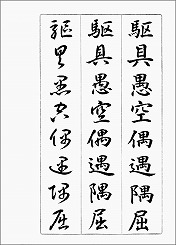 驅具愚空偶遇隅屈
驅具愚空偶遇隅屈
驅具愚空偶遇隅屈